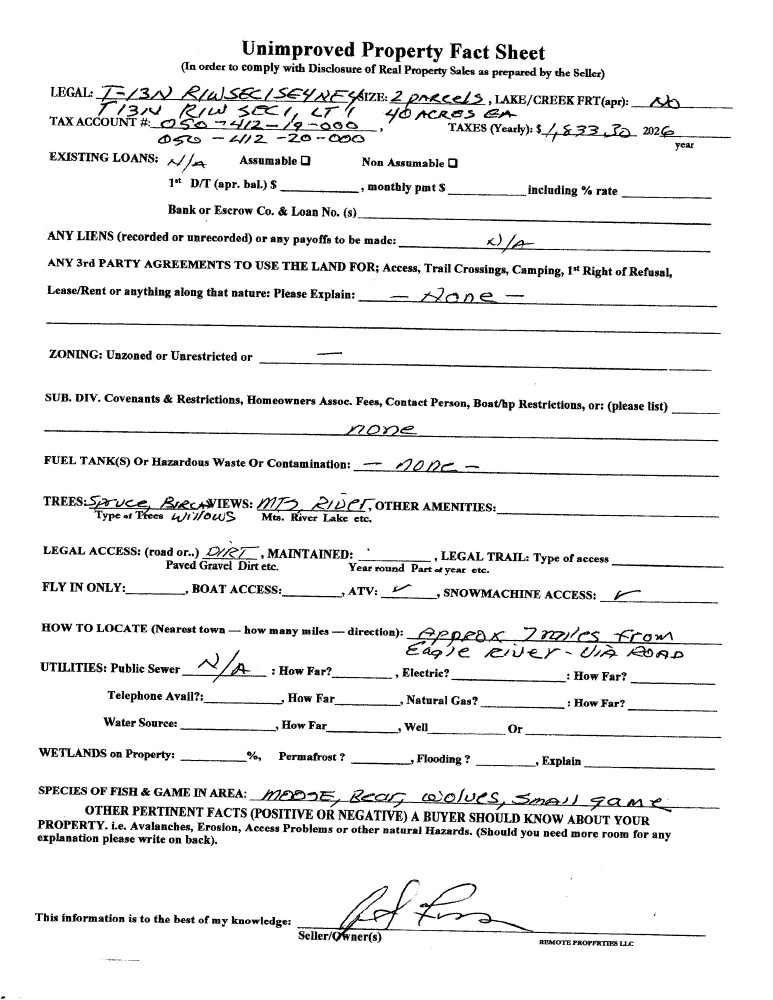 Unimproved Property Fact Sheet
(In order to comply with Disclosure of Real Property Sales as prepared by the Seller)
LEGAL: T-13N R1W SEC 1 SE4NE4 SIZE: 2 parcels, LAKE/CREEK FRT(apr): No
T13N R1W SEC 1, LT 1 40 ACRES EA
TAX ACCOUNT #: 050-412-19-000, TAXES (Yearly): $ 1,833.30 2026
050-412-20-000 year
EXISTING LOANS: N/A Assumable ☐ Non Assumable ☐
1st D/T (apr. bal.) $ , monthly pmt $ including % rate
Bank or Escrow Co. & Loan No. (s)
ANY LIENS (recorded or unrecorded) or any payoffs to be made: N/A
ANY 3rd PARTY AGREEMENTS TO USE THE LAND FOR; Access, Trail Crossings, Camping, 1st Right of Refusal,
Lease/Rent or anything along that nature: Please Explain: — None —
ZONING: Unzoned or Unrestricted or —
SUB. DIV. Covenants & Restrictions, Homeowners Assoc. Fees, Contact Person, Boat/hp Restrictions, or: (please list)
none
FUEL TANK(S) Or Hazardous Waste Or Contamination: — none —
TREES: Spruce, Birch VIEWS: MTS, River, OTHER AMENITIES:
Type of Trees Willows Mts. River Lake etc.
LEGAL ACCESS: (road or..) DIRT, MAINTAINED: , LEGAL TRAIL: Type of access
Paved Gravel Dirt etc. Year round Part of year etc.
FLY IN ONLY: , BOAT ACCESS: , ATV: ✓, SNOWMACHINE ACCESS: ✓
HOW TO LOCATE (Nearest town — how many miles — direction): Approx 7 miles from
Eagle River - VIA ROAD
UTILITIES: Public Sewer N/A : How Far? , Electric? : How Far?
Telephone Avail?: , How Far , Natural Gas? : How Far?
Water Source: , How Far , Well Or
WETLANDS on Property: %, Permafrost ? , Flooding ? , Explain
SPECIES OF FISH & GAME IN AREA: MOOSE, Bear, wolves, small game
OTHER PERTINENT FACTS (POSITIVE OR NEGATIVE) A BUYER SHOULD KNOW ABOUT YOUR
PROPERTY. i.e. Avalanches, Erosion, Access Problems or other natural Hazards. (Should you need more room for any
explanation please write on back).
This information is to the best of my knowledge:
Seller/Owner(s)
REMOTE PROPERTIES LLC